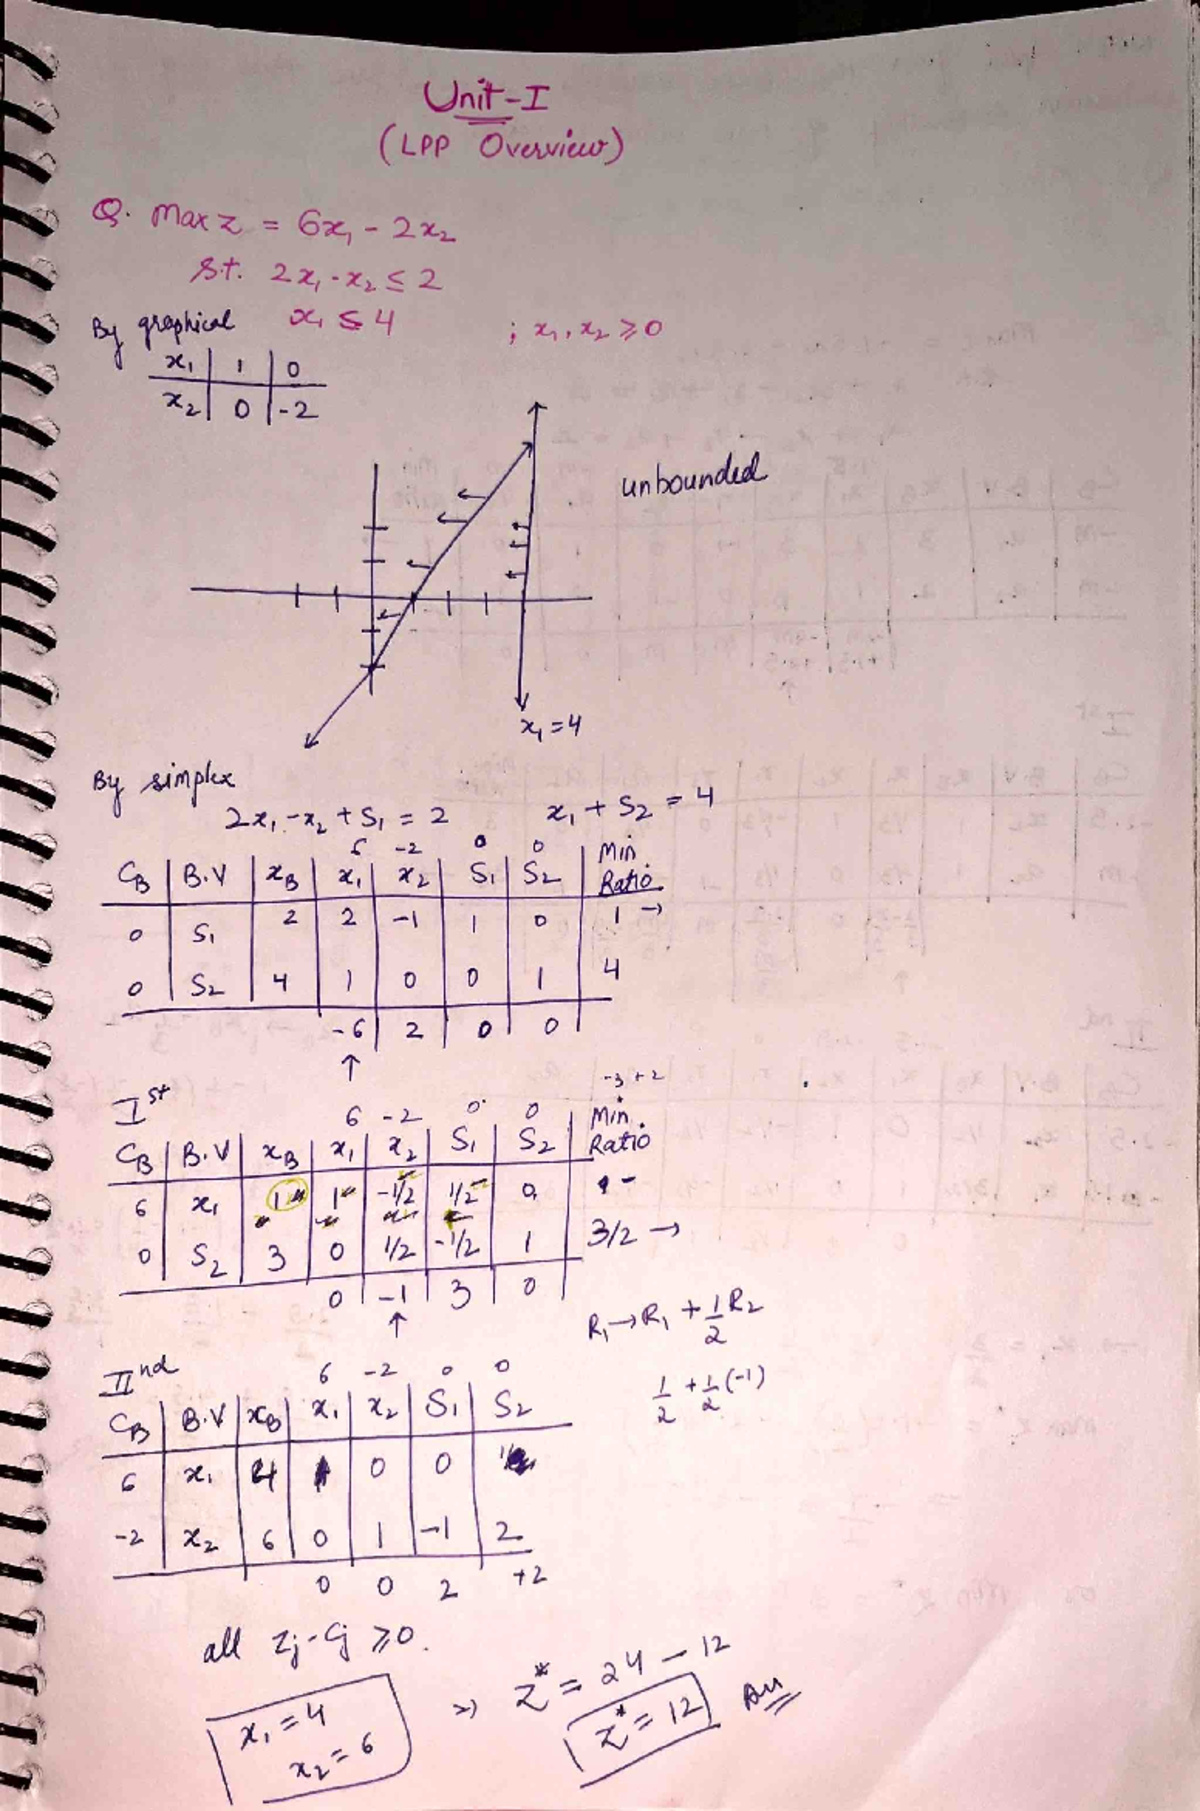 Unit-I
(LPP Overview)
Q. Max z = 6x₁ - 2x₂
S.t. 2x₁ - x₂ ≤ 2
x₁ ≤ 4 ; x₁, x₂ ≥ 0
By graphical
x₁ | 1 | 0
x₂ | 0 | -2
unbounded
x₁ = 4
By simplex
2x₁ - x₂ + S₁ = 2 x₁ + S₂ = 4
6 -2 0 0
C_B | B.V | x_B | x₁ | x₂ | S₁ | S₂ | Min. Ratio
0 | S₁ | 2 | 2 | -1 | 1 | 0 | 1 →
0 | S₂ | 4 | 1 | 0 | 0 | 1 | 4
-6 | 2 | 0 | 0
↑
Iˢᵗ
-3+2
6 -2 0 0
C_B | B.V | x_B | x₁ | x₂ | S₁ | S₂ | Min. Ratio
6 | x₁ | 1 | 1 | -1/2 | 1/2 | 0 | -
0 | S₂ | 3 | 0 | 1/2 | -1/2 | 1 | 3/2 →
0 | -1 | 3 | 0
↑
R₁ → R₁ + 1/2 R₂
1/2 + 1/2 (-1)
IIⁿᵈ
6 -2 0 0
C_B | B.V | x_B | x₁ | x₂ | S₁ | S₂
6 | x₁ | 4 | 1 | 0 | 0 |
-2 | x₂ | 6 | 0 | 1 | -1 | 2
0 0 2 +2
all Zj - Cj ≥ 0.
x₁ = 4
x₂ = 6
⇒ Z* = 24 - 12
Z* = 12 Ans